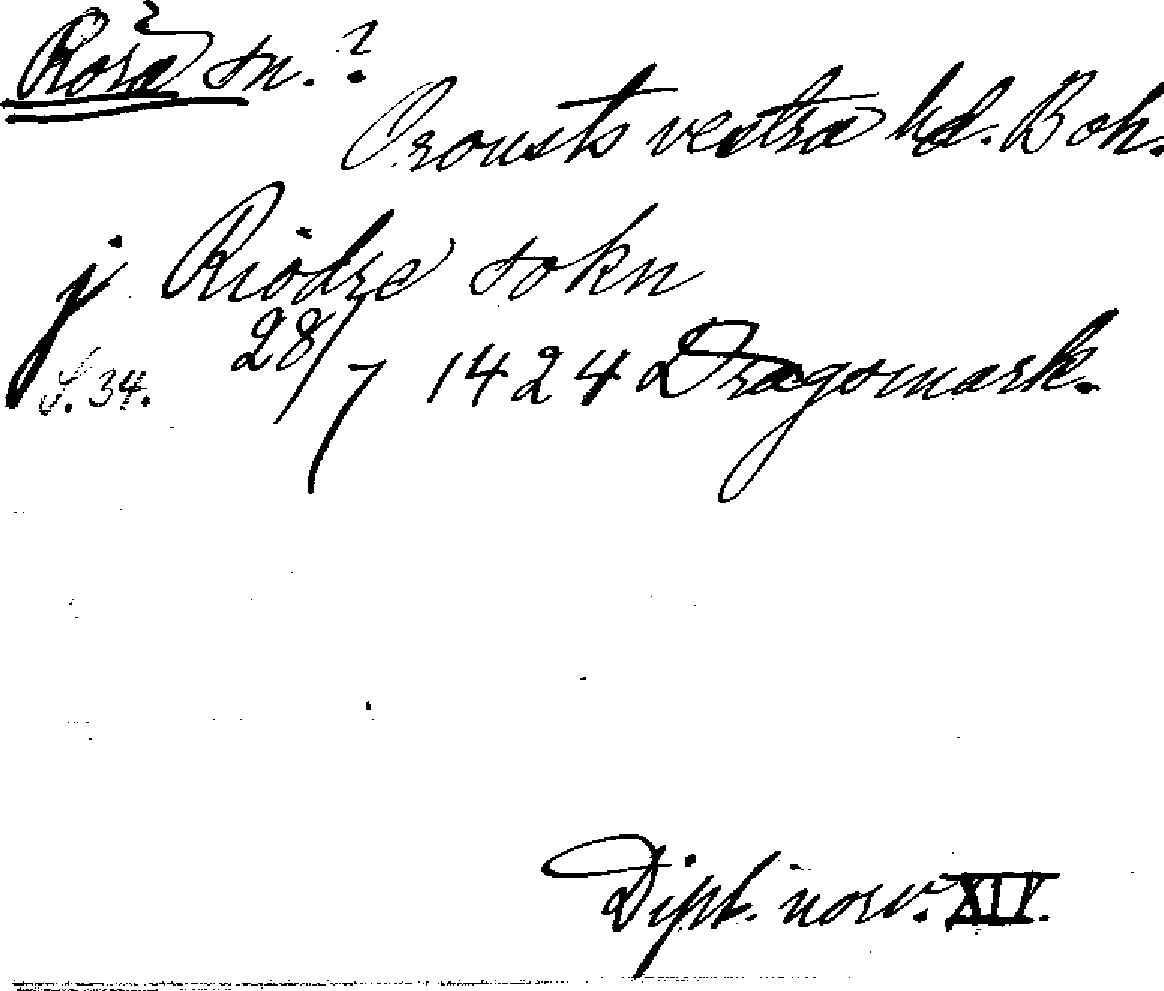 Rörå sn. ?
Orousts vestra hd. Boh.
j Riödre sokn
S. 34. 28/7 1424 Dragsmark.
Dipl. norv. XIV.